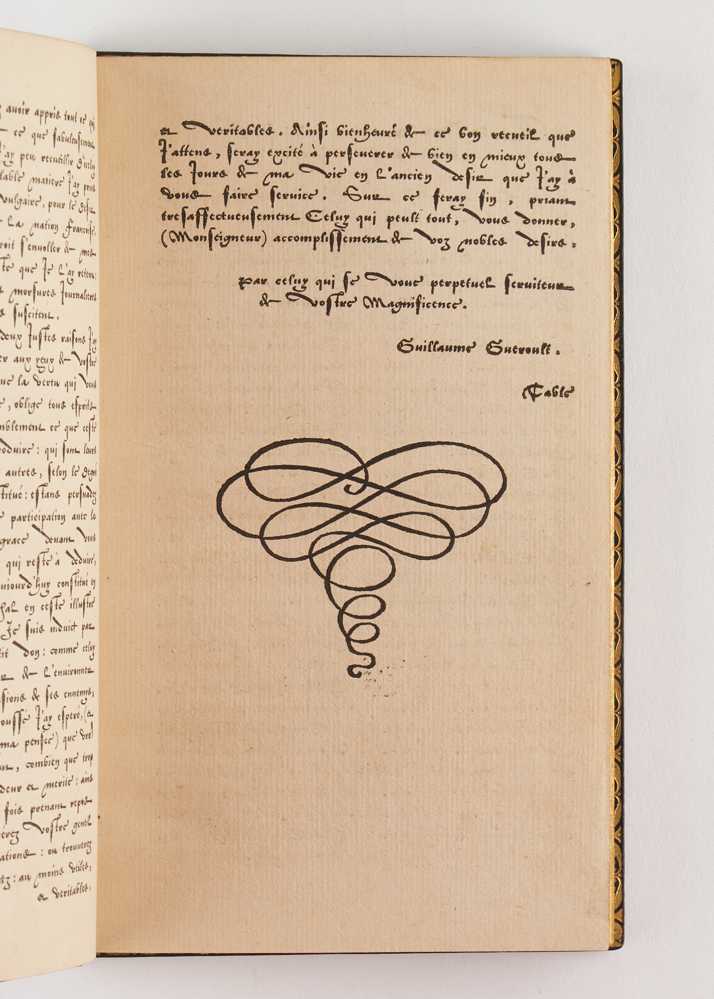 avoir appris tout ce qu
ce que fabuleusemen
j'ay peu recueillir d'icelu
table matiere j'ay prins
vulgaire, pour le desir
la nation Françoise
roit s'enroller de mes
te que je l'ay retenu
morsures journalieres
s suscitent.
deux justes raisons j'ay
er aux yeux de vostre
ue la vertu qui vous
, oblige tous esprits
mblement ce que ceste
roduire: qui sont leurs
autres, selon le degré
titué: estans persuadez
participation avec la
grace devant vous
qui reste à deduire,
ujourd'huy constitué en
hal en ceste illustre
Je suis induict par
tit don: comme celuy
de l'environner
sions de ses ennemys,
oussé j'ay espere, (&
ma pensee) que vous
, combien que trop
deur et merite: ains
fois prenant repos
Vostre gentil
ations: ou trouverez
: au moins utiles,
et veritables.
et veritables. Ainsi bienheuré de ce bon recueil que
j'attens, seray excité à perseverer de bien en mieux tous
les jours de ma vie en l'ancien desir que j'ay à
vous faire service. Sur ce feray fin, priant
tresaffectueusement Celuy qui peult tout, vous donner,
(Monseigneur) accomplissement de voz nobles desirs.
par celuy qui se voue perpetuel serviteur
de vostre Magnificence.
Guillaume Gueroult.
Table